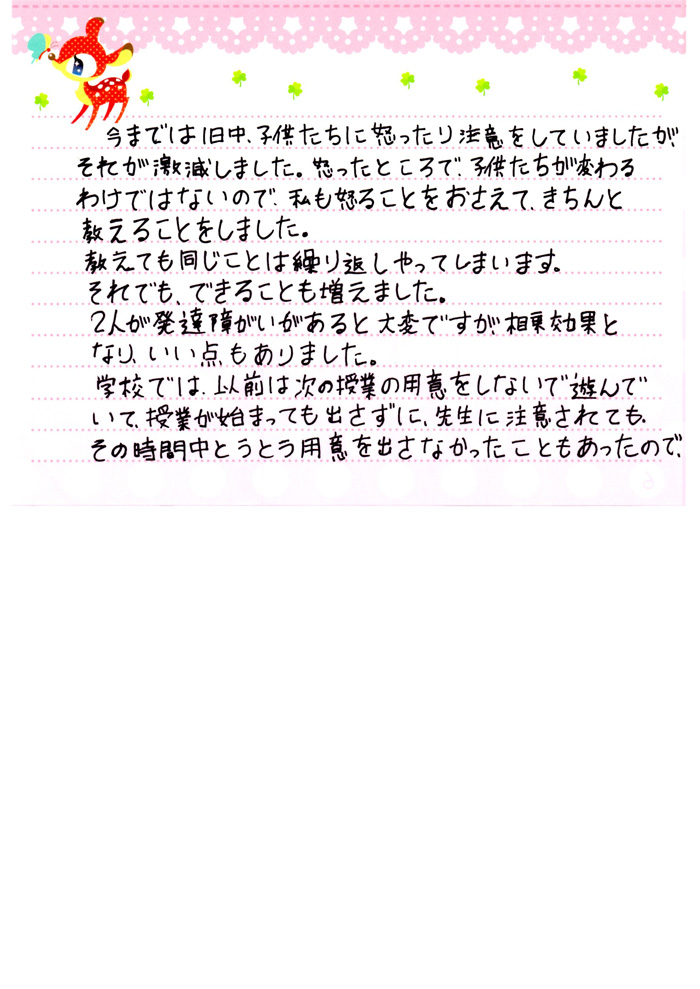 今までは1日中、子供たちに怒ったり注意をしていましたが、
それが激減しました。怒ったところで、子供たちが変わる
わけではないので、私も怒ることをおさえて、きちんと
教えることをしました。
教えても同じことは繰り返しやってしまいます。
それでも、できることも増えました。
2人が発達障がいがあると大変ですが、相乗効果と
なり、いい点もありました。
学校では、以前は次の授業の用意をしないで遊んで
いて、授業が始まっても出さずに、先生に注意されても、
その時間中とうとう用意を出さなかったこともあったので、